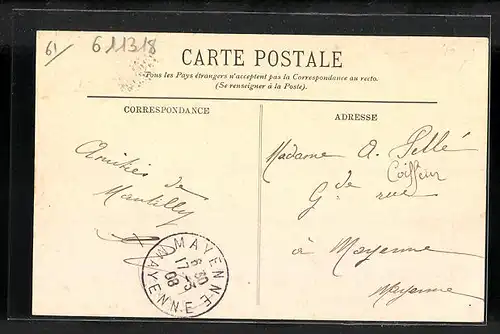 61
611318
CARTE POSTALE
Tous les Pays étrangers n'acceptent pas la Correspondance au recto.
(Se renseigner à la Poste).
CORRESPONDANCE
ADRESSE
Amitiés de
Mantilly
Madame A. Pellé
Coiffeur
Gde rue
à Mayenne
Mayenne
MAYENNE
6 30
17 - 3
08
MAYENNE